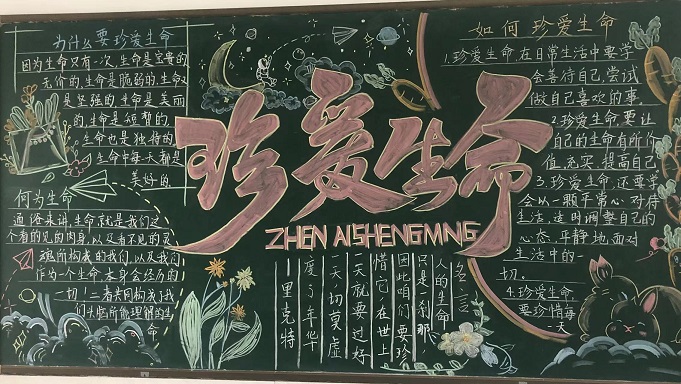 为什么要珍爱生命
因为生命只有一次,生命是宝贵的
无价的,生命是脆弱的,生命又
是坚强的,生命是美丽
的,生命是短暂的,
生命也是独特的,
生命中每天都是
美好的
何为生命
通俗来讲,生命就是我们这
个看的见的肉身,以及看不见的灵
魂所构成的我们,以及我们
作为一个生命本身会经历的
一切!二者共同构成了我
们头脑所能理解的生
命
珍爱生命
ZHEN AISHENGMING
名言
人的生命,
只是一刹那,
因此咱们要珍
惜它,在世上
一天就要过好
一天,切莫虚
度了年华
——里克特
如何珍爱生命
1.珍爱生命,在日常生活中要学
会善待自己,尝试
做自己喜欢的事,
2.珍爱生命,要让
自己的生命有所价
值,充实,提高自己
3.珍爱生命,还要学
会以一颗平常心,对待
生活,适时调整自己的
心态,平静地面对
生活中的一
切.
4.珍爱生命,
要珍惜每
一天